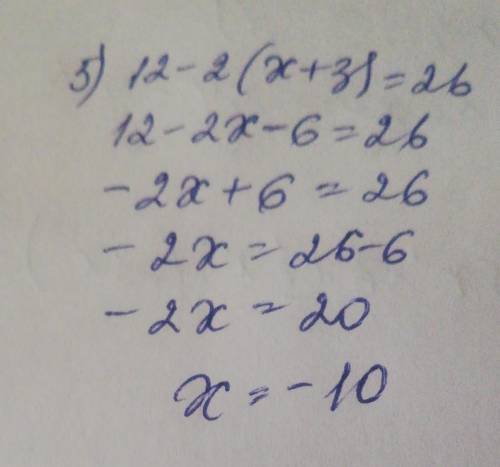 5) 12-2(x+3)=26
12-2x-6=26
-2x+6=26
-2x=26-6
-2x=20
x=-10